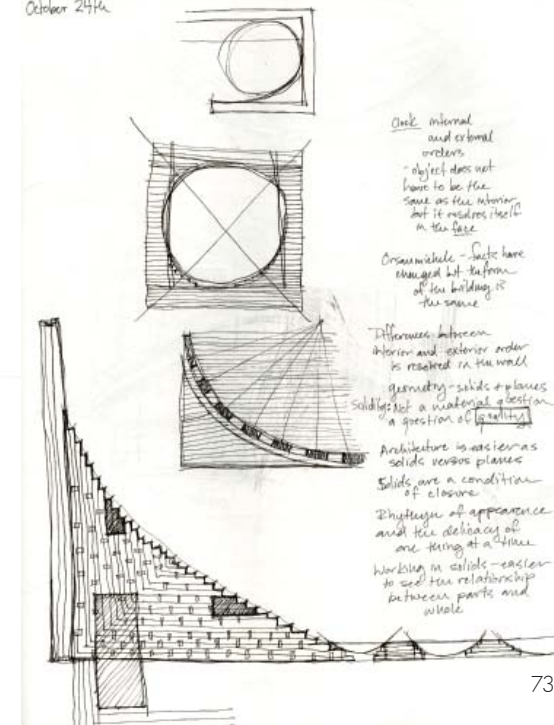 October 24th
Clock internal
and external
orders
- object does not
have to be the
same as the interior
but it resolves itself
in the face
Orsanmichele - facts have
changed but the form
of the building is
the same
Differences between
interior and exterior order
is resolved in the wall
geometry - solids + planes
Solidity: Not a material question
a question of quality
Architecture is easier as
solids versus planes
Solids are a condition
of closure
Rhythym of appearence
and the delicacy of
one thing at a time
Working in solids - easier
to see the relationship
between parts and
whole
73